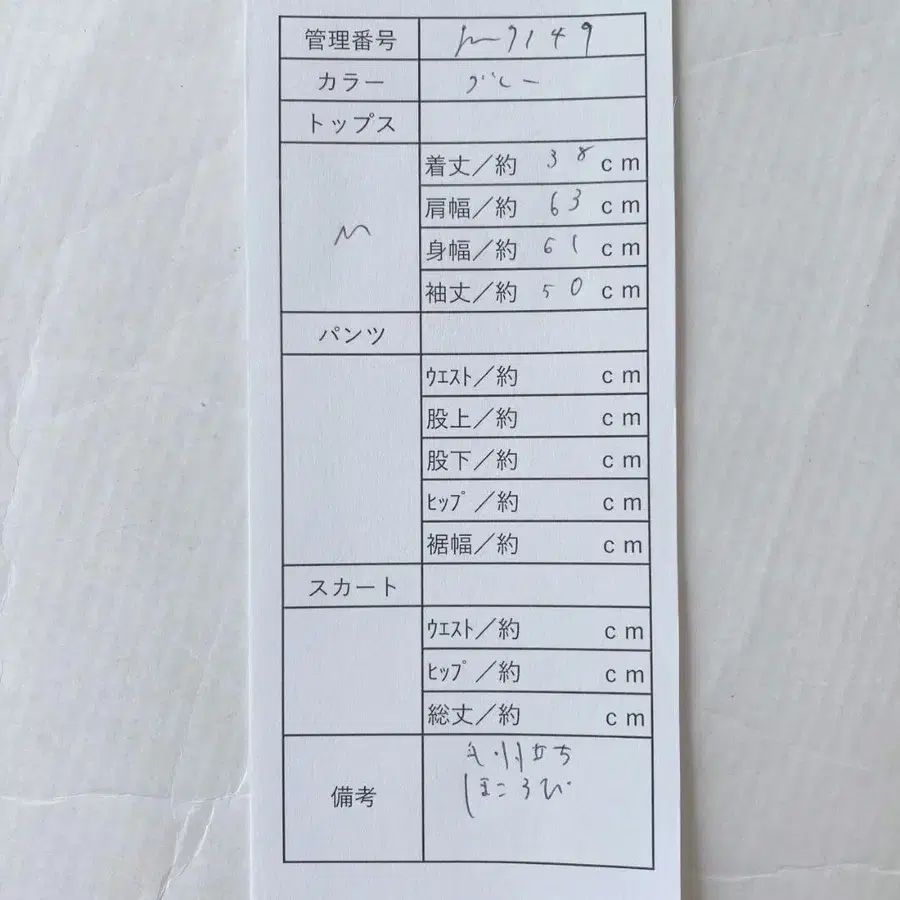 管理番号 m9149
カラー グレー
トップス
M
着丈／約 38 cm
肩幅／約 63 cm
身幅／約 61 cm
袖丈／約 50 cm
パンツ
ｳｴｽﾄ／約 cm
股上／約 cm
股下／約 cm
ﾋｯﾌﾟ／約 cm
裾幅／約 cm
スカート
ｳｴｽﾄ／約 cm
ﾋｯﾌﾟ／約 cm
総丈／約 cm
備考
毛羽立ち
ほころび